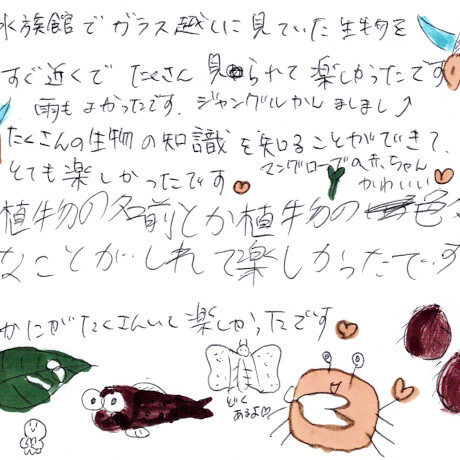 水族館でガラス越しに見ていた生物を
すぐ近くでたくさん見られて楽しかったです
雨もよかったです。ジャングルかんましまし↑
たくさんの生物の知識を知ることができて、
とても楽しかったです
マングローブの赤ちゃん
かわいい
植物の名前とか植物の色々
なことがしれて楽しかったです
かにがたくさんいて楽しかったです
どく
あるよ